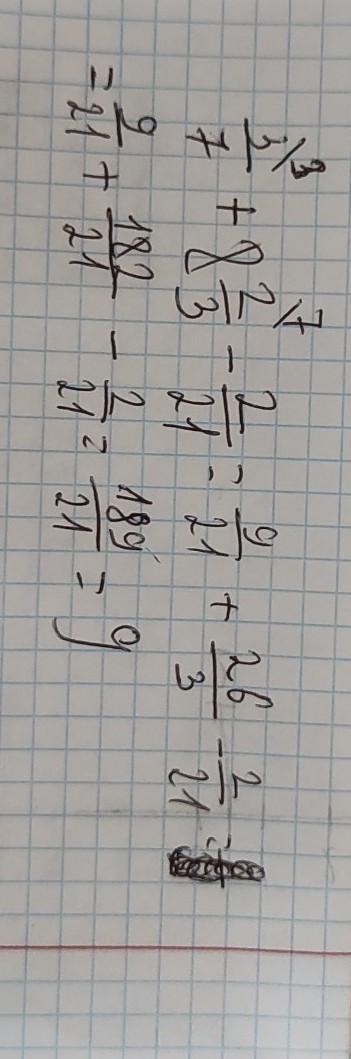 3/7 \3 + 8 2/3 \7 - 2/21 = 9/21 + 26/3 - 2/21 =
= 9/21 + 182/21 - 2/21 = 189/21 = 9